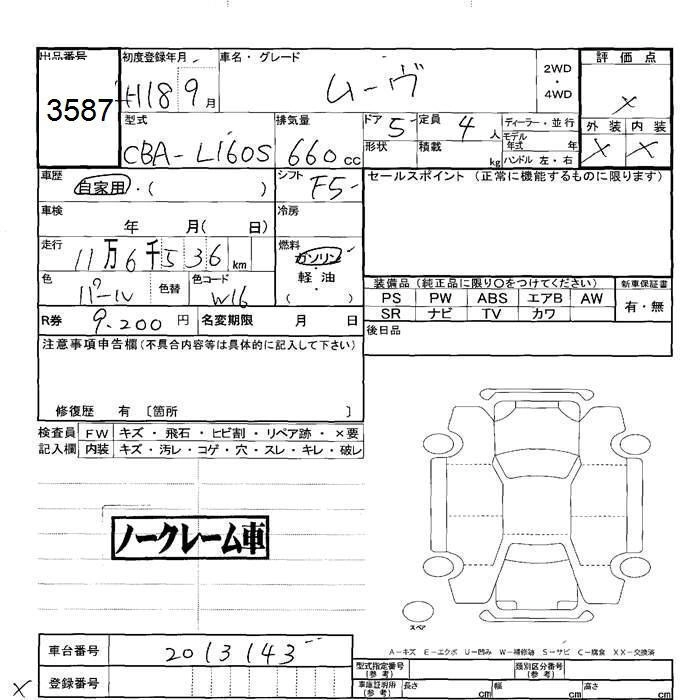 出品番号 初度登録年月 車名・グレード 2WD・4WD 評価点
3587 H18 9月 ムーヴ ×
型式 排気量 ドア 5 定員 4人 ディーラー・並行 外装 内装
CBA-L160S 660cc 形状 積載 kg モデル年式 年 × ×
ハンドル 左・右
車歴 自家用・( ) シフト F5 セールスポイント (正常に機能するものに限ります)
車検 年 月( 日) 冷房
走行 11万6千536km 燃料 ガソリン・軽油 ( )
色 パール 色替 色コード W16
装備品 (純正品に限り○をつけてください) 新車保証書
PS PW ABS エアB AW 有・無
SR ナビ TV カワ
R券 9.200円 名変期限 月 日 後日品
注意事項申告欄(不具合内容等は具体的に記入して下さい)
修復歴 有 〔箇所 〕
検査員 FW キズ・飛石・ヒビ割・リペア跡・×要
記入欄 内装 キズ・汚レ・コゲ・穴・スレ・キレ・破レ
ノークレーム車
スペア
A-キズ E-エクボ U-凹み W-補修跡 S-サビ C-腐食 XX-交換済
車台番号 2013143
型式指定番号(参考) 類別区分番号(参考)
× 登録番号 車庫証明用(参考) 長さ cm 幅 cm 高さ cm